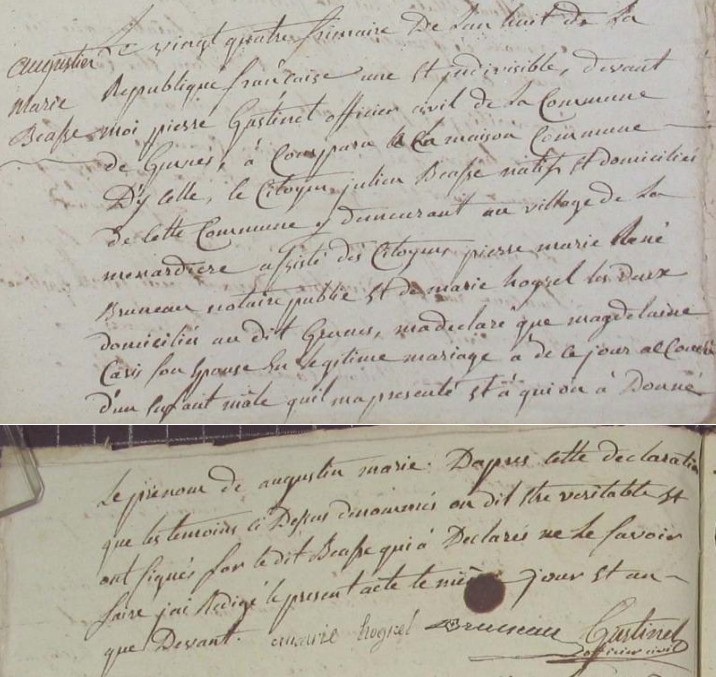 augustin
marie
Beasse
Le vingt quatre frimaire De Lan huit de La
Republique francaise une et indivisible, devant
moi pierre Gastinel officier civil de la Commune
de Grunés, à Comparu la maison Commune
D'y celle, le Citoyen julien Beasse natif et domicilié
de cette Commune y demeurant au village de La
menardiere assisté des Citoyens pierre marie René
Bruneau notaire public et de marie hogrel les deux
domiciliés au dit Grunes, ma declaré que magdelaine
Caris son Epouse En legitime mariage a de ce jour
D'un Enfant mâle quil ma presenté et à qui on à Donné
Le prenom de augustin marie. Dapres cette declaration
que les temoins ci Dessus denommés on dit Etre veritable et
ont signés for le dit Beasse qui à Declarés ne le savoir
faire jai Redigé le present acte le même jour et an
que Devant. marie hogrel Bruneau Gastinel
officier civil